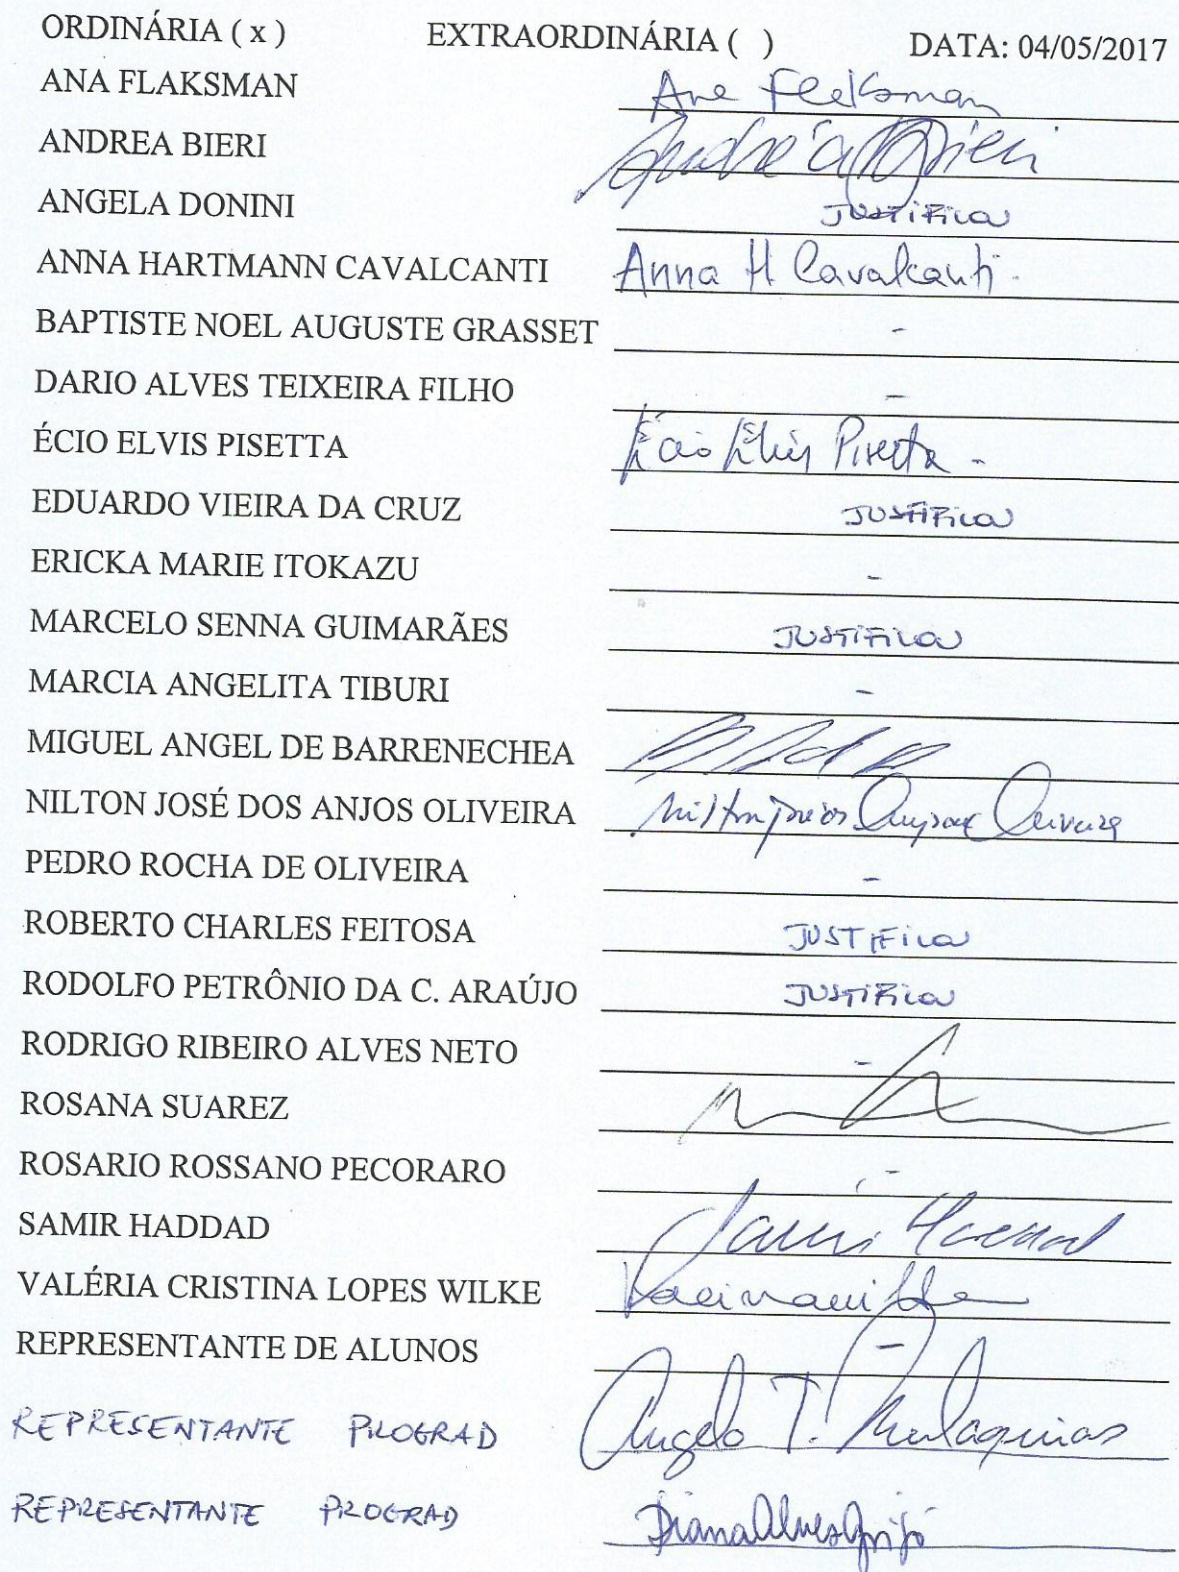 ORDINÁRIA ( x ) EXTRAORDINÁRIA ( ) DATA: 04/05/2017
ANA FLAKSMAN Ana Flaksman
ANDREA BIERI Andréa Bieri
ANGELA DONINI JUSTIFICOU
ANNA HARTMANN CAVALCANTI Anna H Cavalcanti.
BAPTISTE NOEL AUGUSTE GRASSET -
DARIO ALVES TEIXEIRA FILHO -
ÉCIO ELVIS PISETTA Écio Elvis Pisetta -
EDUARDO VIEIRA DA CRUZ JUSTIFICOU
ERICKA MARIE ITOKAZU -
MARCELO SENNA GUIMARÃES JUSTIFICOU
MARCIA ANGELITA TIBURI -
MIGUEL ANGEL DE BARRENECHEA
NILTON JOSÉ DOS ANJOS OLIVEIRA Nilton José dos Anjos Oliveira
PEDRO ROCHA DE OLIVEIRA -
ROBERTO CHARLES FEITOSA JUSTIFICOU
RODOLFO PETRÔNIO DA C. ARAÚJO JUSTIFICOU
RODRIGO RIBEIRO ALVES NETO -
ROSANA SUAREZ
ROSARIO ROSSANO PECORARO -
SAMIR HADDAD Samir Haddad
VALÉRIA CRISTINA LOPES WILKE
REPRESENTANTE DE ALUNOS -
REPRESENTANTE PROGRAD Angelo T. Malaquias
REPRESENTANTE PROGRAD Diana Alves Grijó